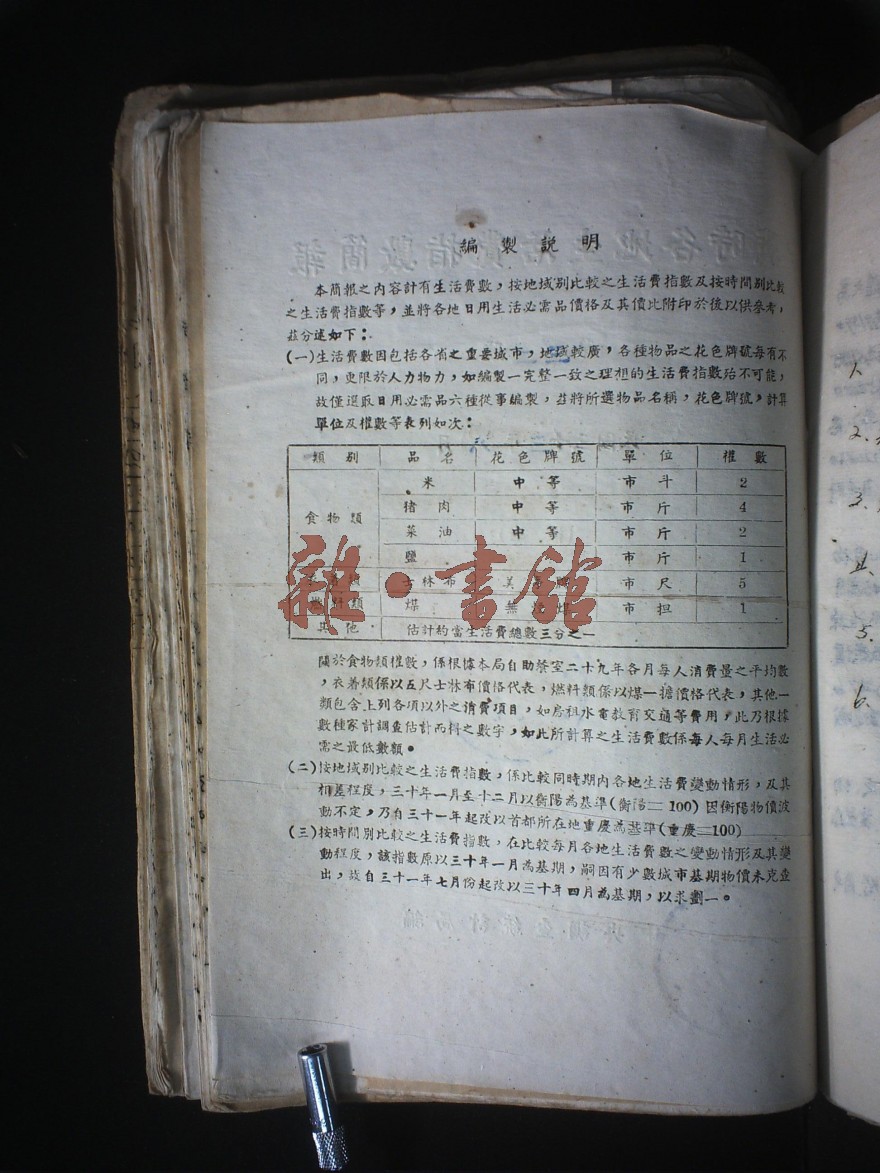 編製說明
本簡報之內容計有生活費數，按地域別比較之生活費指數及按時間別比較
之生活費指數等，並將各地日用生活必需品價格及其價比附印於後以供參考，
茲分述如下：
(一)生活費數因包括各省之重要城市，地域較廣，各種物品之花色牌號每有不
同，更限於人力物力，如編製一完整一致之理想的生活費指數殆不可能，
故僅選取日用必需品六種從事編製，茲將所選物品名稱，花色牌號，計算
單位及權數等表列如次：
類別 品名 花色牌號 單位 權數
食物類 米 中等 市斗 2
猪肉 中等 市斤 4
菜油 中等 市斤 2
鹽 市斤 1
士林布 市尺 5
煤 市担 1
其他 估計約當生活費總數三分之一
關於食物類權數，係根據本局自助禁室二十九年各月每人消費量之平均數
，衣着類係以五尺士林布價格代表，燃料類係以煤一擔價格代表，其他一
類包含上列各項以外之消費項目，如房租水電教育交通等費用，此乃根據
數種家計調查估計而得之數字，如此所計算之生活費數係每人每月生活必
需之最低數額。
(二)按地域別比較之生活費指數，係比較同時期內各地生活費變動情形，及其
相差程度，三十年一月至十二月以衡陽為基準(衡陽＝100)因衡陽物價波
動不定，乃自三十一年起改以首都所在地重慶為基準(重慶＝100)
(三)按時間別比較之生活費指數，在比較每月各地生活費數之變動情形及其變
動程度，該指數原以三十年一月為基期，嗣因有少數城市基期物價未克查
出，故自三十一年七月份起改以三十年四月為基期，以求劃一。
雜·書館
1.
2.
3.
4.
5.
6.